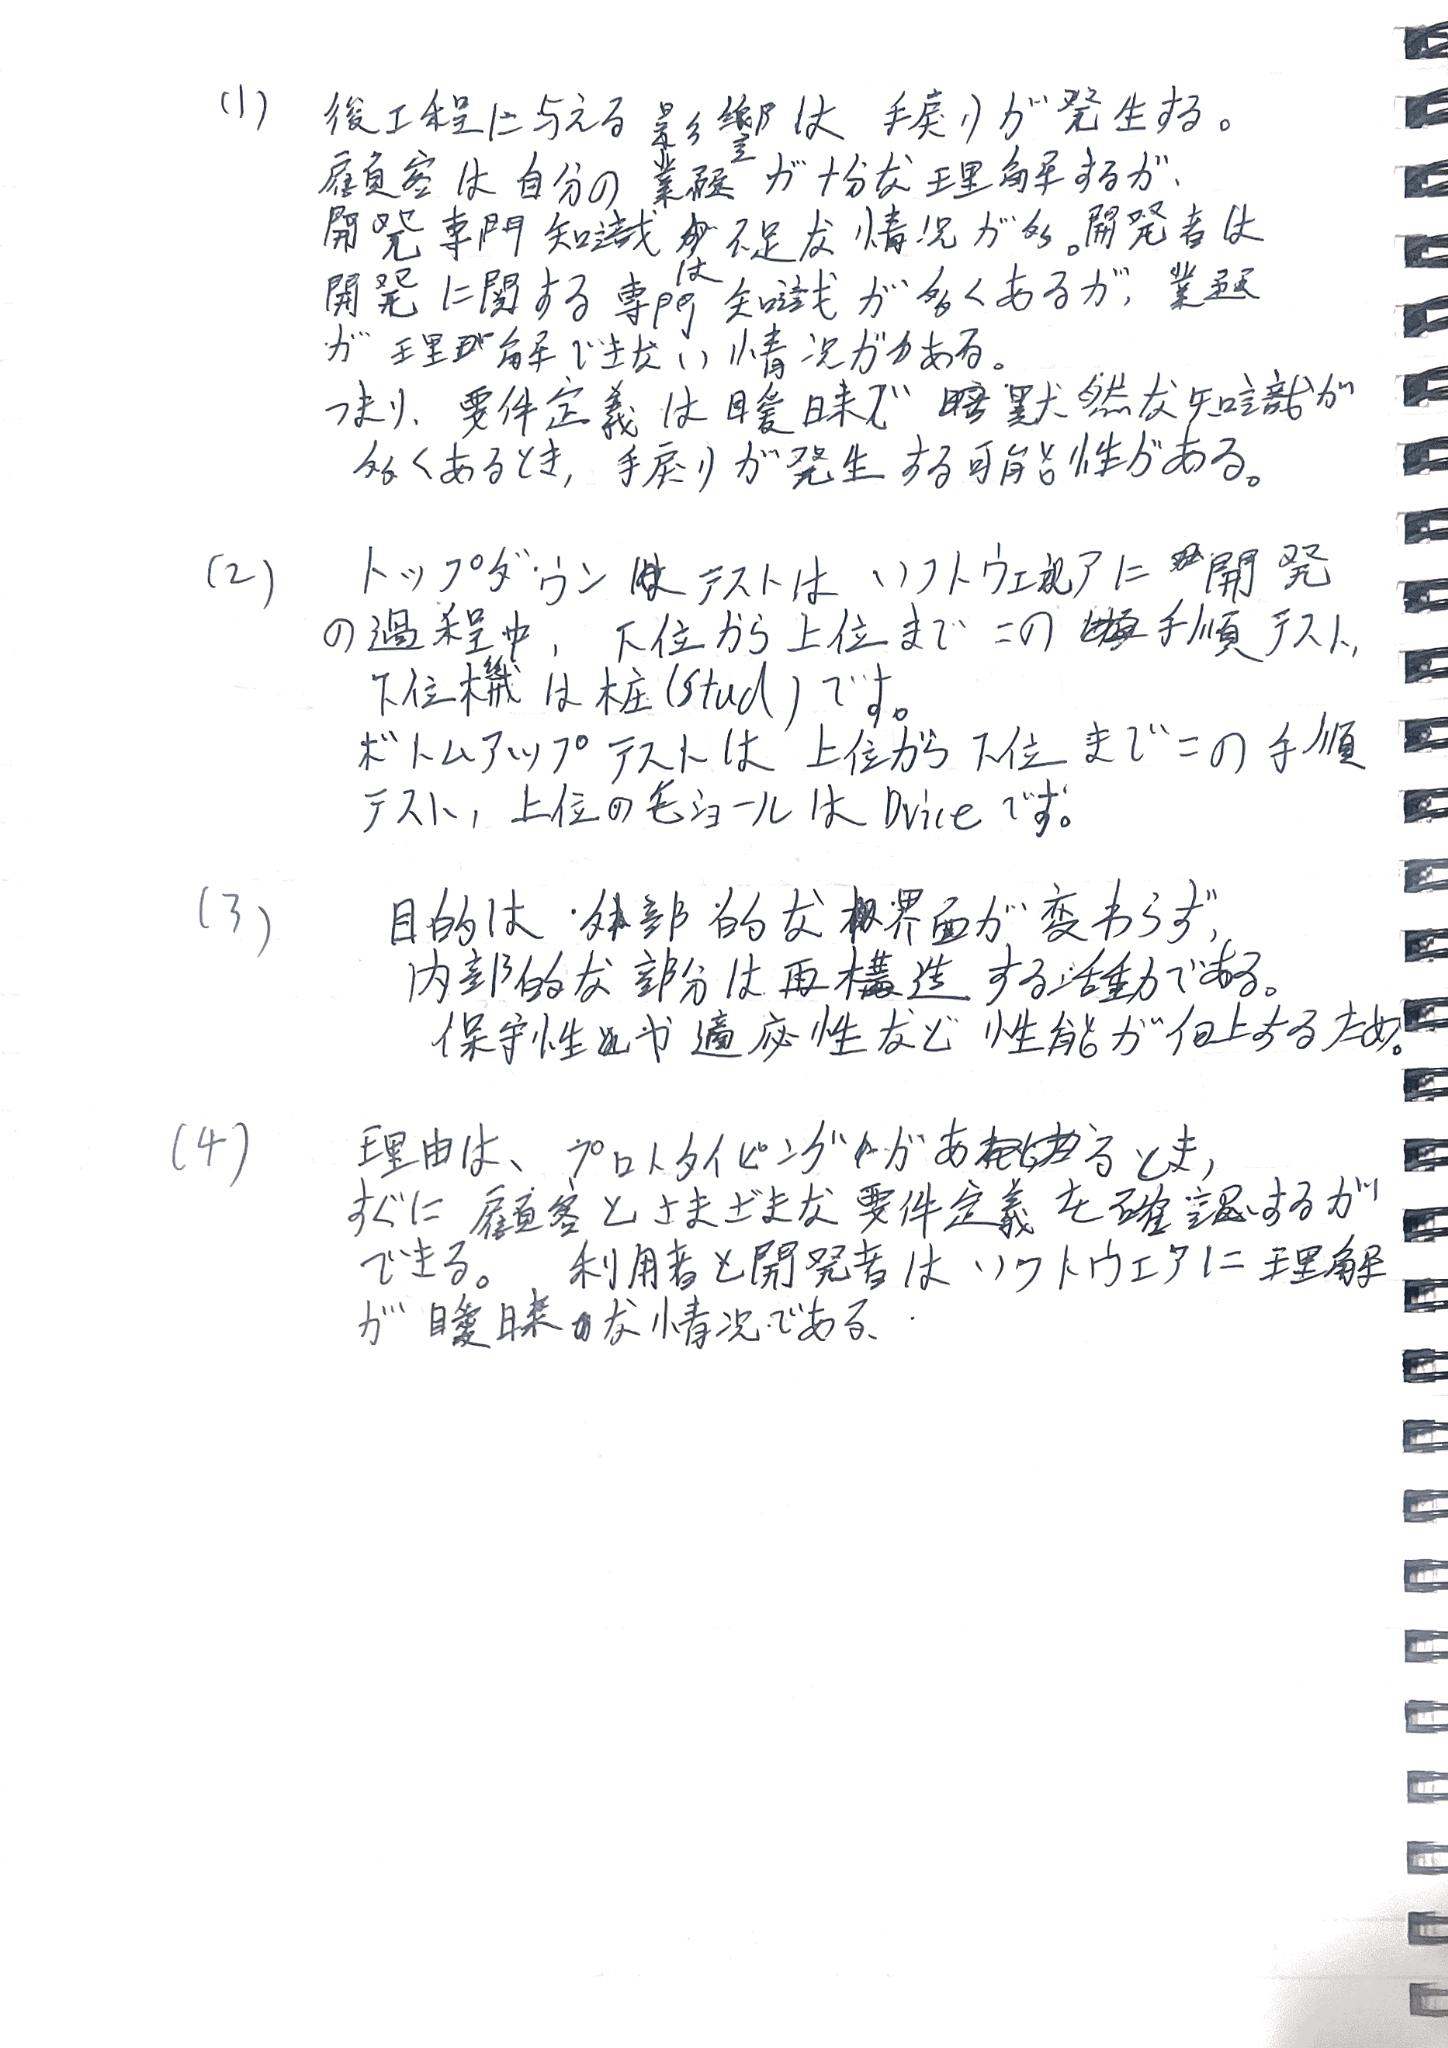 (1) 後工程に与える影響は手戻りが発生する。
顧客は自分の業務が十分な理解するが、
開発専門知識が不足な情況が多。開発者は
開発に関する専門知識が多くあるが、業務
が理解できない情况がある。
つまり、要件定義は曖昧で暗黙然な知識が
多くあるとき, 手戻りが発生する可能性がある。
(2) トップダウンテストはソフトウェアに開発
の過程中, 下位から上位までこの手順テスト,
下位機は桩(Stud)です。
ボトムアップテストは上位から下位までこの手順
テスト, 上位のモジュールはDviceです。
(3) 目的は外部的な界面が変わらず,
内部的な部分は再構造する活動である。
保守性や適応性など性能が向上するため。
(4) 理由は、プロトタイピングがあるとき,
すぐに顧客とさまざまな要件定義を確認するが
できる。利用者と開発者はソフトウェアに理解
が曖昧な情況である、